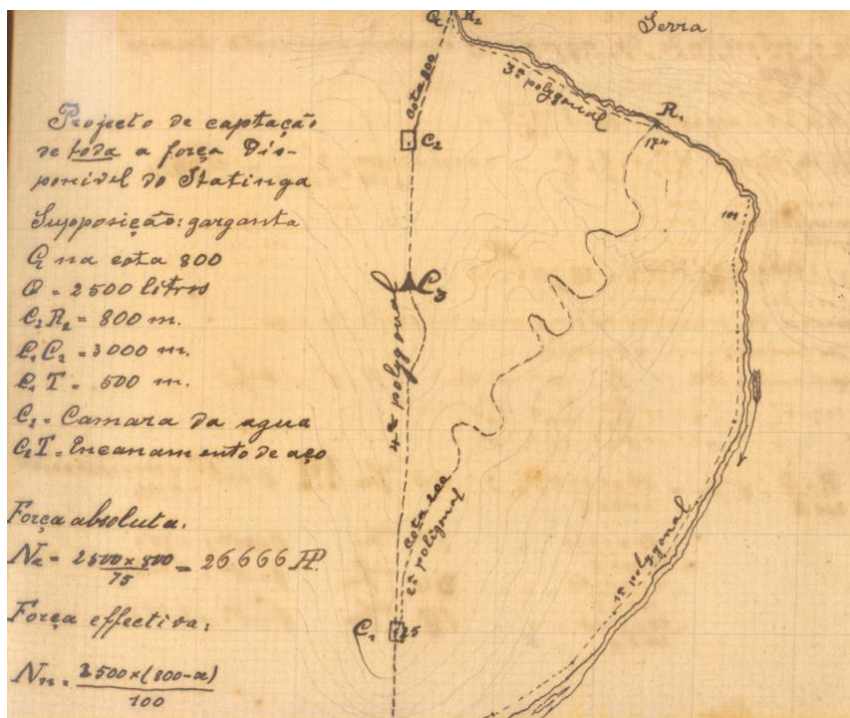 Projecto de captação
de toda a força Dis-
ponivel do Itatinga
Supposição: garganta
G na cota 800
Q = 2500 litros
C₂R₂ = 800 m.
C₁C₂ = 3000 m.
C₁T = 500 m.
C₂ = Camara da agua
C₂T = Encanamento de aço
Força absoluta.
2500 x 800
75
= 26666 HP.
Força effectiva:
2500 x (800-α)
100
R₂
Serra
cota 800
3ª polygonal
R₁
C₂
C₃
4ª polygonal
cota
2ª poligonal
1ª polygonal
C₁